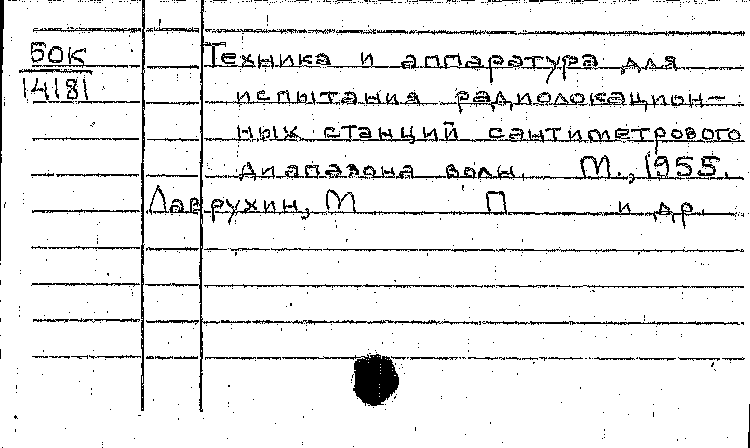 БОК Техника и аппаратура для
14181 испытания радиолокацион-
ных станций сантиметрового
диапазона волн. М., 1955.
Лаврухин, М П и др.